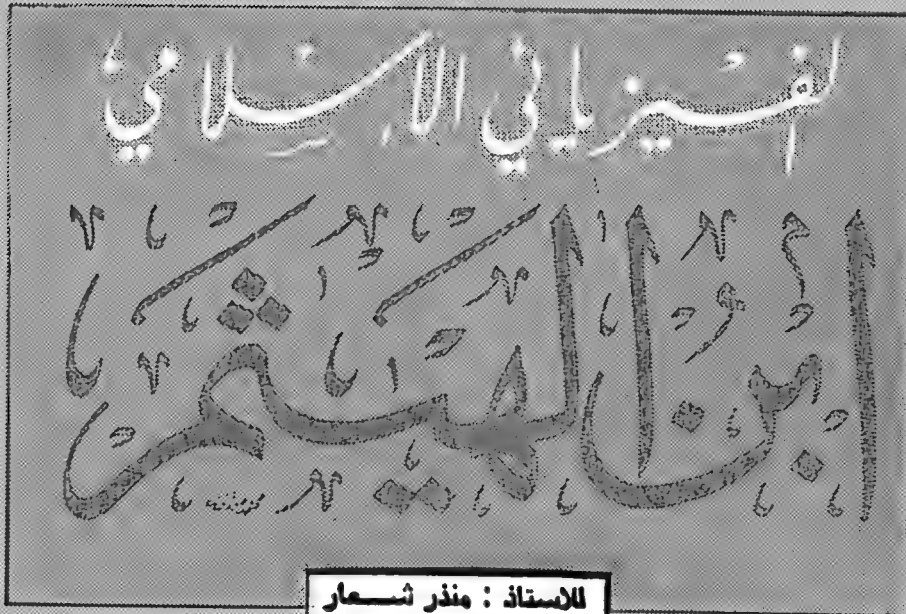 الفيزيائي الإسلامي
ابن الهيثم
للاستاذ : منذر شعار